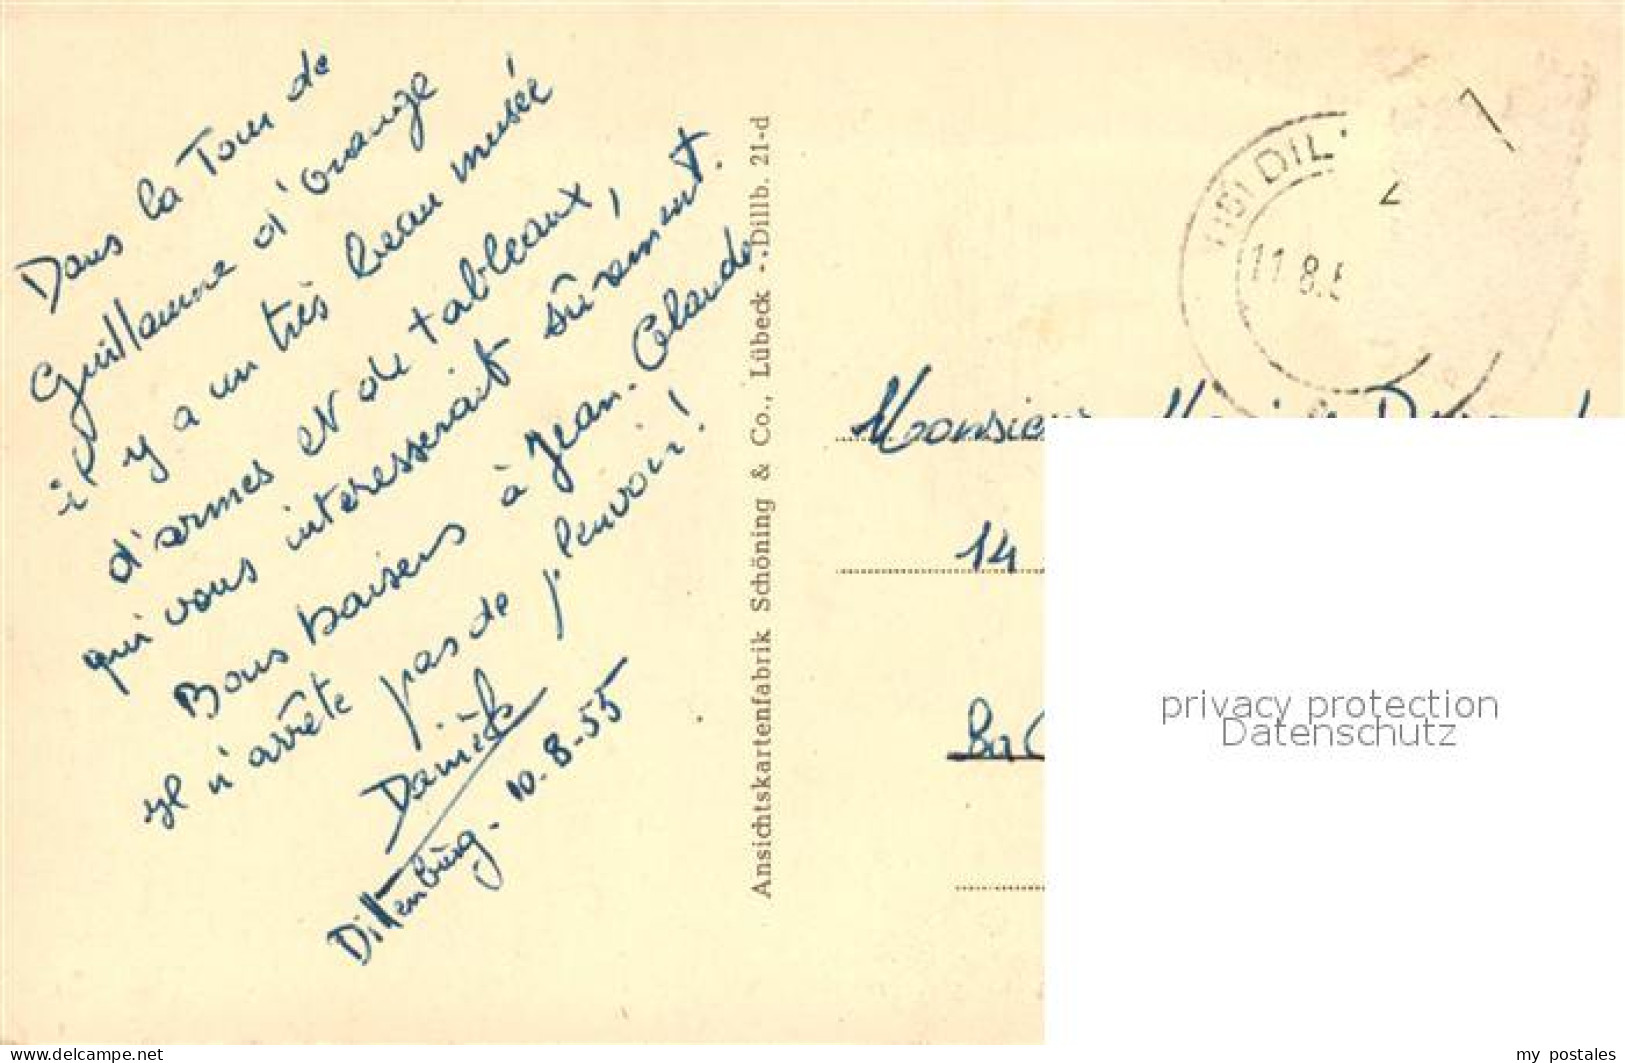 Dans la Tour de
Guillaume d'orange
il y a un très beau musée
d'armes et de tableaux,
qui vous interesserait sûrement.
Bons baisers à Jean-Claude
pas de l'envoi!
Dillenburg - 10-8-55
Ansichtskartenfabrik Schöning & Co., Lübeck - Dillb. 21-d
DIL
11.8.5
Monsieur
14
privacy protection
Datenschutz
https://www.delcampe.net
my_postales